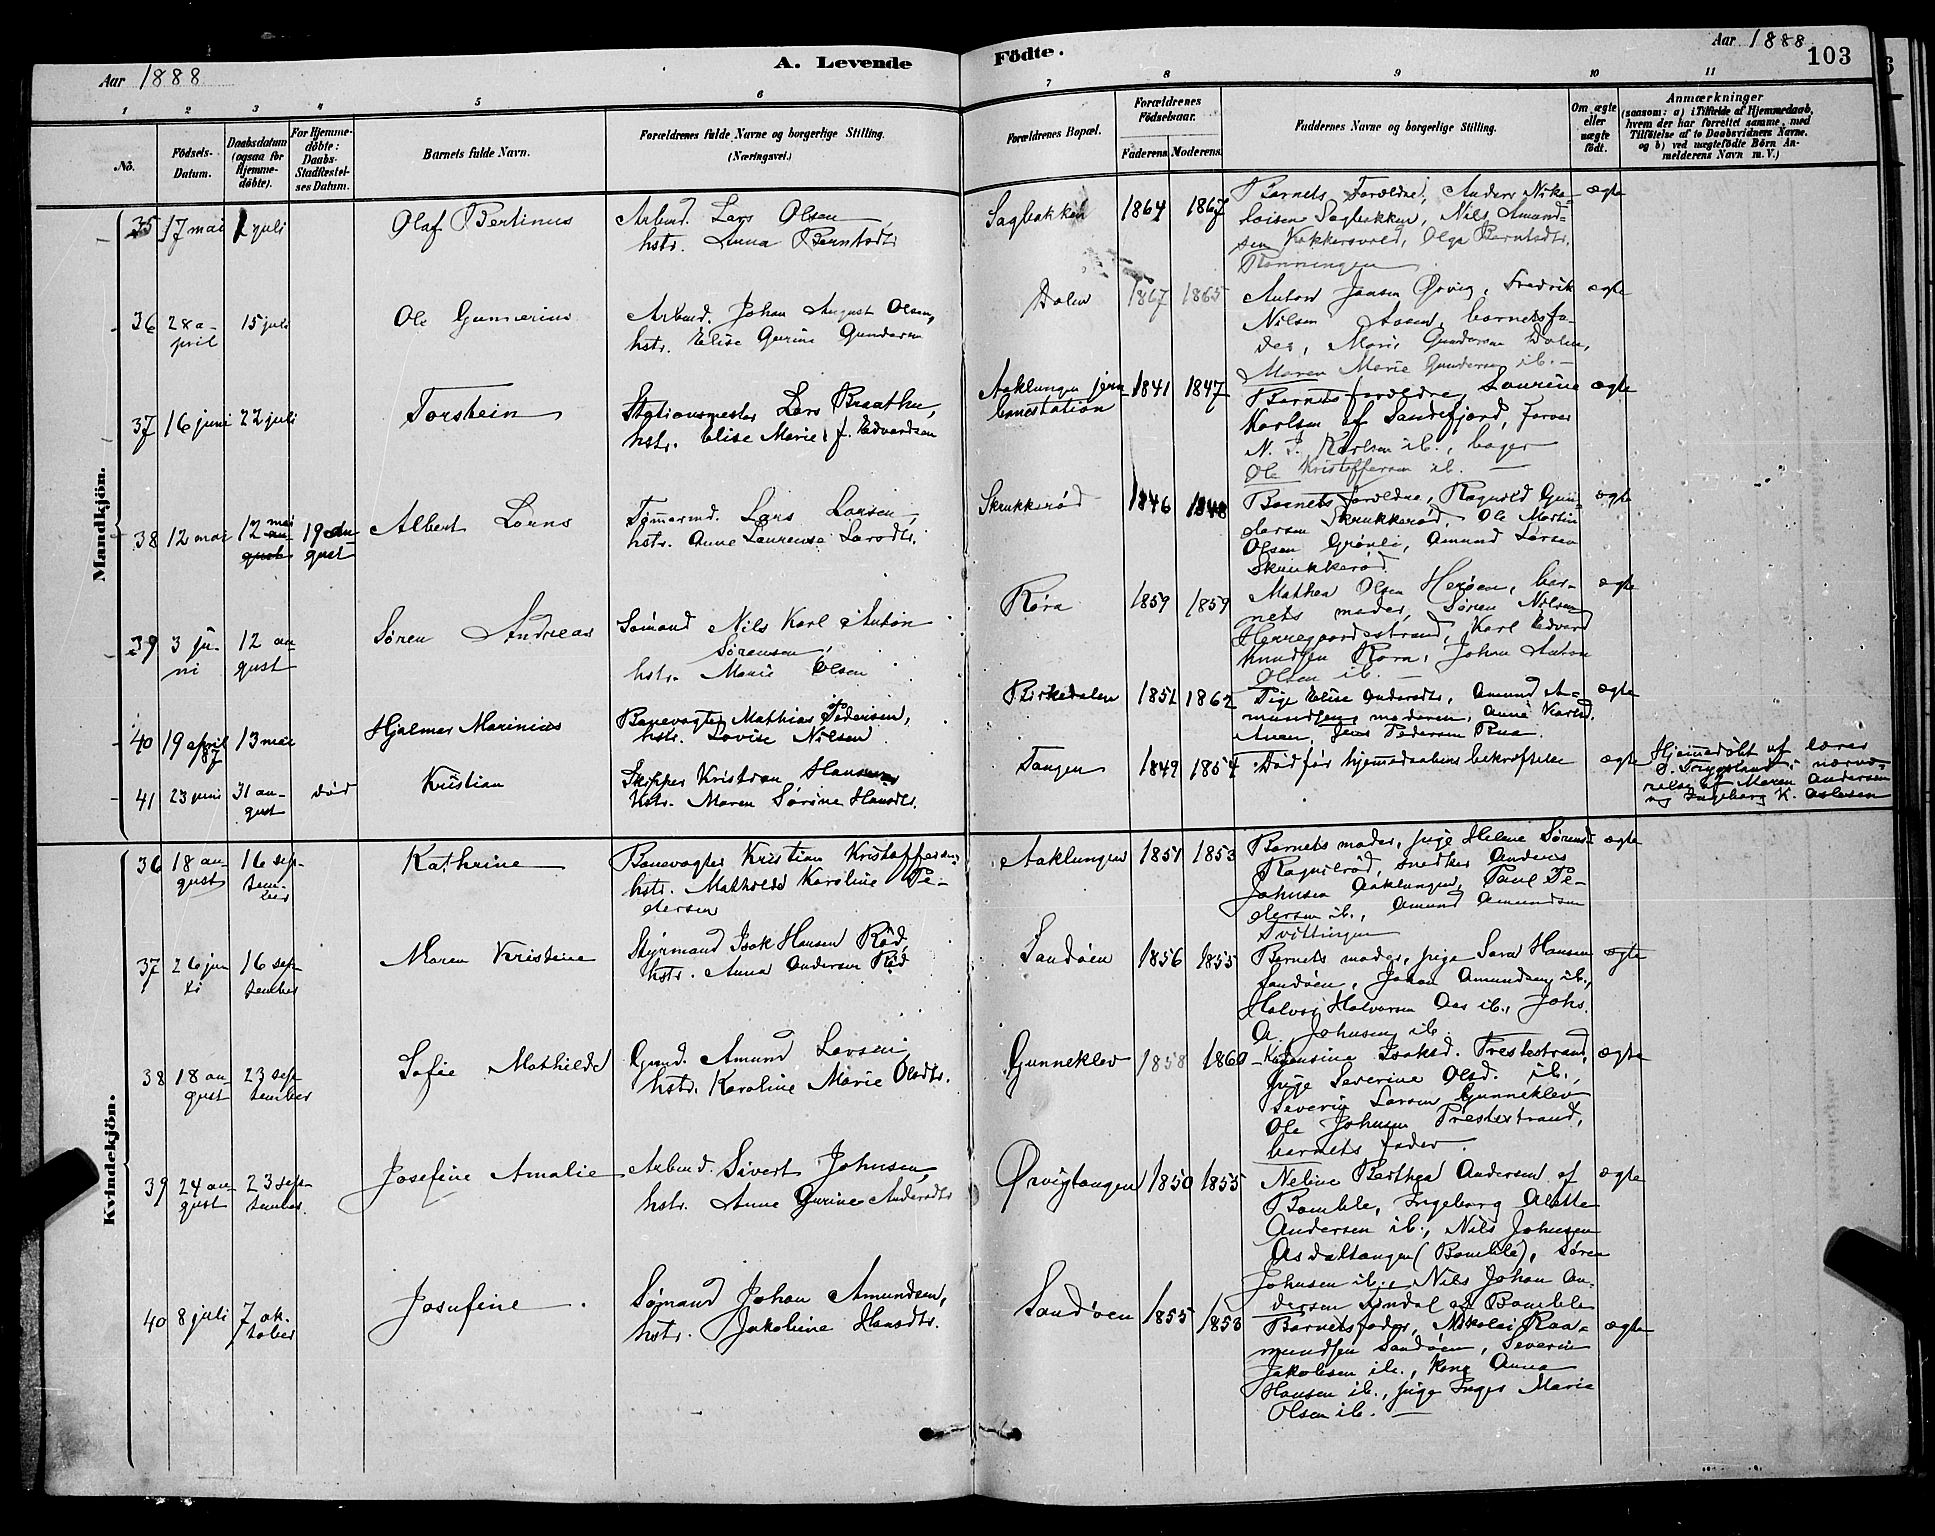 Aar 1888
A. Levende
Födte.
Aar 1888
103
1 2 3 4 5 6 7 8 9 10 11
No.
Födsels-
Datum.
Daabsdatum
(ogsaa for
Hjemme-
döbte).
For Hjemme-
döbte:
Daabs-
Stadfæstel-
ses Datum.
Barnets fulde Navn.
Forældrenes fulde Navne og borgerlige Stilling.
(Næringsvei.)
Forældrenes Bopæl.
Forældrenes
Födselsaar.
Faderens Moderens
Faddernes Navne og borgerlige Stilling.
Om ægte
eller
uægte
födt.
Anmærkninger
(saasom: a) i Tilfælde af Hjemmedaab,
hvem der har forrettet samme, med
Tilföielse af to Daabsvidners Navne.
og b) ved uægtefödte Börn An-
melderens Navn m. V.)
Mandkjön.
35 17 mai 1 juli
Olaf Bertinus
Arbmd. Lars Olsen,
hstr. Anna Berntsdtr
Sagbakken 1864 1867
Barnets Forældre, Anders Niko-
laisen Sagbakken, Nils Amund-
sen Kokkersvold, Olga Berntsdtr.
Rønningen
ægte
36 28 a-
pril
15 juli
Ole Gunnerius
Arbmd. Johan August Olsen,
hstr. Elise Gurine Gundersen
Dalen 1867 1865
Anton Jansen Ørvig, Fredrik
Nilsen Aasen, barnets fa-
der, Mari Gundersen Dalen,
Maren Marie Gundersen ib. —
ægte
37 16 juni 22 juli
Torstein
Stationsmester Lars Braathen,
hstr. Elise Marie f. Edvardsen
Aaklungen jern
banestation
1841 1847
Barnets forældre, Laurine
Karlsen af Sandefjord, farver
N. J. Karlsen ib., bager
Ole Kristoffersen ib. —
ægte
38 12 mai 12 mai
au-
gust
19 au-
gust
Albert Lorns
Tømmermd. Lars Larsen,
hstr. Anne Laurense Larsdtr.
Skrukkerød 1846 1848
Barnets forældre, Ragnild Gun-
dersen Skrukkerød, Ole Martin
Olsen Grønli, Amund Larsen
Skrukkerød
ægte
39 3 ju-
ni
12 au-
gust
Søren Andreas
Sømand Nils Karl Anton
Sørensen,
hstr. Marie Olsen
Røra 1859 1859
Mathea Olsen Herøen, bar-
nets moder, Søren Nilsen
Herregaardsstrand, Karl Edvard
Knudsen Røra, Johan Anton
Olsen ib. —
ægte
40 19 april
87
13 mai
Hjalmar Marinius
Banevogter Mathias Pedersen,
hstr. Lovise Nilsen
Birkedalen 1851 1862
Pige Elise Andersdtr, Amund A-
mundsen, moderen, Anne Karlsd.
Jens Pedersen Rua.
ægte
41 23 juni 31 au-
gust
død
Kristian
Skipper Kristian Hansen
hstr. Maren Sørine Hansdtr.
Tangen 1849 1854
Død før hjemmedaabens bekræftelse
ægte
Hjemmedøbt af lærer
Tryggsland i nærvæ-
relse af Maren Andersen
og Ingeborg K. Aslaksen
Kvindekjön.
36 18 au-
gust
16 sep-
tem-
ber
Kathrine
Banevogter Kristian Kristoffersen,
hstr. Mathilde Karoline Pe-
dersen
Aaklungen 1851 1853
Barnets moder, pige Helene Sørensd.
Ragnilrød, snedker Anders
Johnsen Aaklungen, Paul Pe-
dersen ib., Amund Amundsen
Tvittingen
ægte
37 26 jun
i
16 sep-
tember
Maren Kristine
Styrmand Isak Hansen Rød,
hstr. Anna Andersen Rød
Sandøen 1856 1855
Barnets moder, pige Sara Hansen
Sandøen, Johan Amundsen ib.,
Halvor Halvorsen Aas ib., Johs.
A. Johnsen ib.
ægte
38 18 au-
gust
23 sep-
tember
Sofie Mathilde
Gmd. Amund Larsen
hstr. Karoline Marie Olsdtr.
Gunneklev 1858 1860
Isaksd. Prestestrand,
pige Severine Olsd. ib.,
Severin Larsen Gunneklev
Ole Johnsen Prestestrand,
barnets fader.
ægte
39 24 au-
gust
23 sep-
tember.
Josefine Amalie
Arbmd. Sivert Johnsen,
hstr. Anne Gurine Andersdtr
Ørvigtangen 1850 1855
Neline Berthea Andersen af
Bamble, Ingeborg Alette
Andersen ib., Nils Johnsen
Asdaltangen (Bamble), Søren
Johnsen ib., Nils Johan An-
dersen Findal af Bamble
ægte
40 8 juli 7 ok-
tober
Josefine
Sømand Johan Amundsen,
hstr. Jakobine Hansdtr.
Sandøen 1855 1853
Barnets fader, Nikolai Raa-
mundsen Sandøen, Severin
Jakobsen ib., kone Anna
Hansen ib., pige Inger Marie
Olsen ib. —
ægte